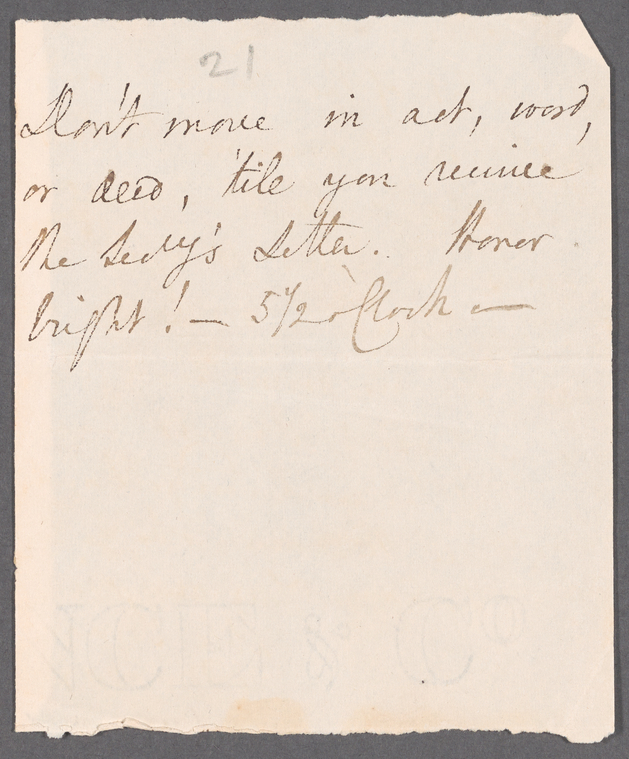 21
Don't move in act, word,
or deed, 'till you receive
the Secry's Letter. Honor
bright! — 5 1/2 o'Clock —